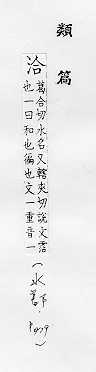 類篇
洽 葛合切水名又轄夾切說文霑
也一曰和也徧也文一重音一
(水部.